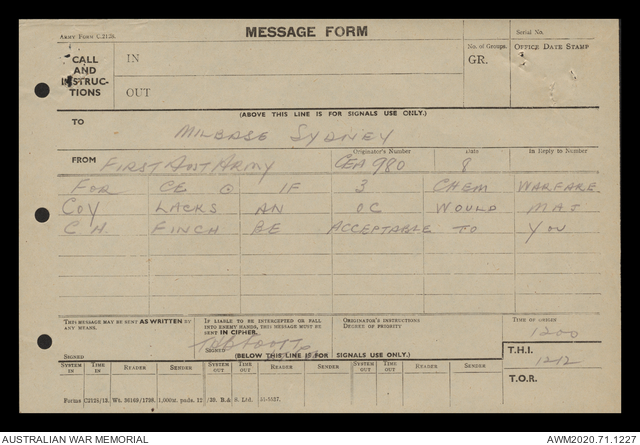 Army Form C.2128.
MESSAGE FORM
Serial No.
CALL AND INSTRUCTIONS
IN
OUT
No. of Groups.
GR.
Office Date Stamp
(ABOVE THIS LINE IS FOR SIGNALS USE ONLY.)
TO
MILBASE SYDNEY
FROM
FIRST AUST ARMY
Originator's Number
CEA 980
Date
8
In Reply to Number
FOR CE ⊙ IF 3 CHEM WARFARE
COY LACKS AN OC WOULD MAJ
C.H. FINCH BE ACCEPTABLE TO YOU
This message may be sent AS WRITTEN by any means.
Signed
If liable to be intercepted or fall into enemy hands, this message must be sent IN CIPHER.
Signed
Originator's Instructions
Degree of Priority
Time of Origin
1200
(BELOW THIS LINE IS FOR SIGNALS USE ONLY.)
T.H.I.
1212
T.O.R.
System In
Time In
Reader
Sender
System Out
Time Out
Reader
Sender
System Out
Time Out
Reader
Sender
AUSTRALIAN WAR MEMORIAL
AWM2020.71.1227